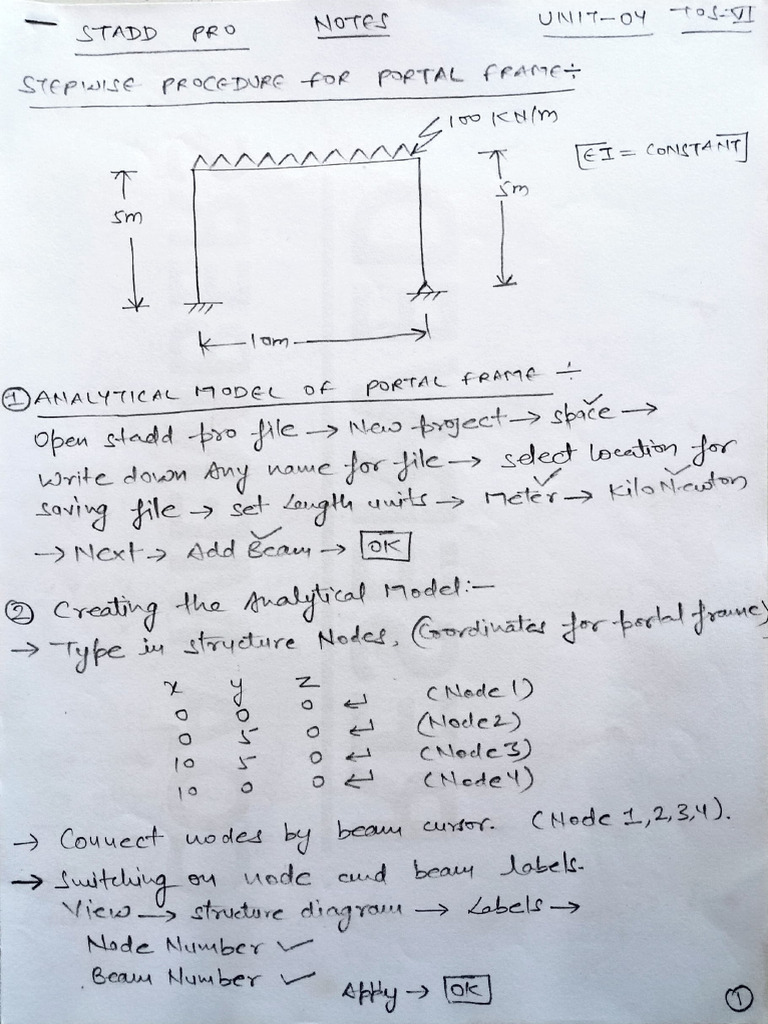 STADD PRO NOTES UNIT-04 TOS-VI
STEPWISE PROCEDURE FOR PORTAL FRAME÷
100 KN/m
EI = CONSTANT
5m
5m
10m
① ANALYTICAL MODEL OF PORTAL FRAME ÷
Open stadd pro file → New project → space →
Write down Any name for file → select location for
saving file → set Length units → Meter → KiloNewton
→ Next → Add Beam → OK
② Creating the Analytical Model:-
→ Type in structure Nodes, (Coordinates for portal frame)
x y z
0 0 0 ↵ (Node 1)
0 5 0 ↵ (Node 2)
10 5 0 ↵ (Node 3)
10 0 0 ↵ (Node 4)
→ Connect nodes by beam cursor. (Node 1,2,3,4).
→ Switching on node and beam labels.
View → structure diagram → Labels →
Node Number ✓
Beam Number ✓
Apply → OK
①